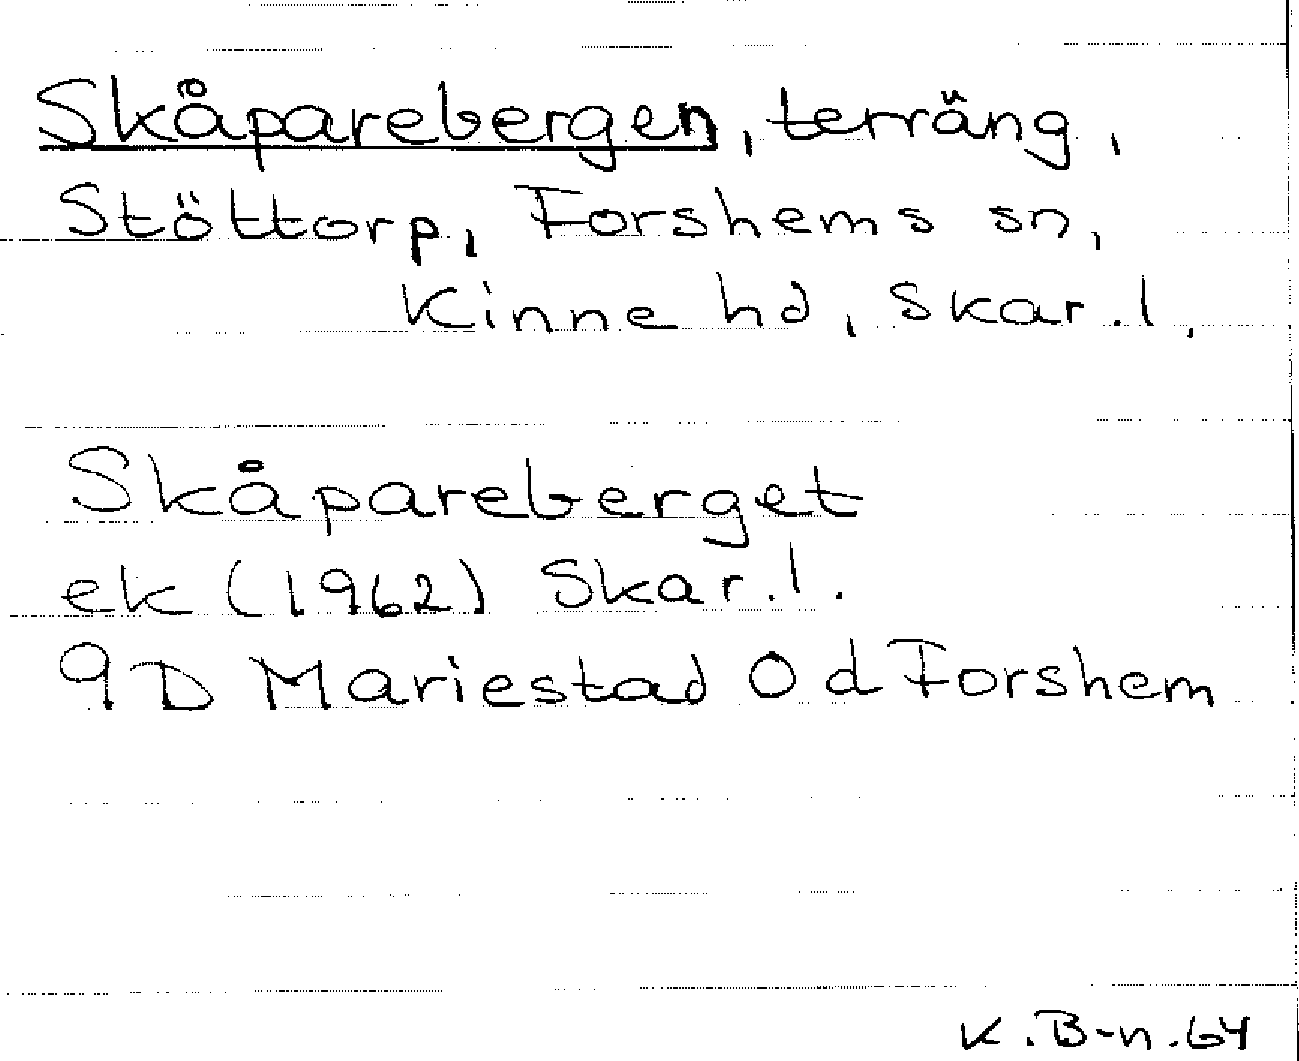 Skåparebergen, terräng,
Stöttorp, Forshems sn,
Kinne hd, Skar.l,
Skåpareberget
ek (1962) Skar.l.
9D Mariestad 0d Forshem
K.B-n.64